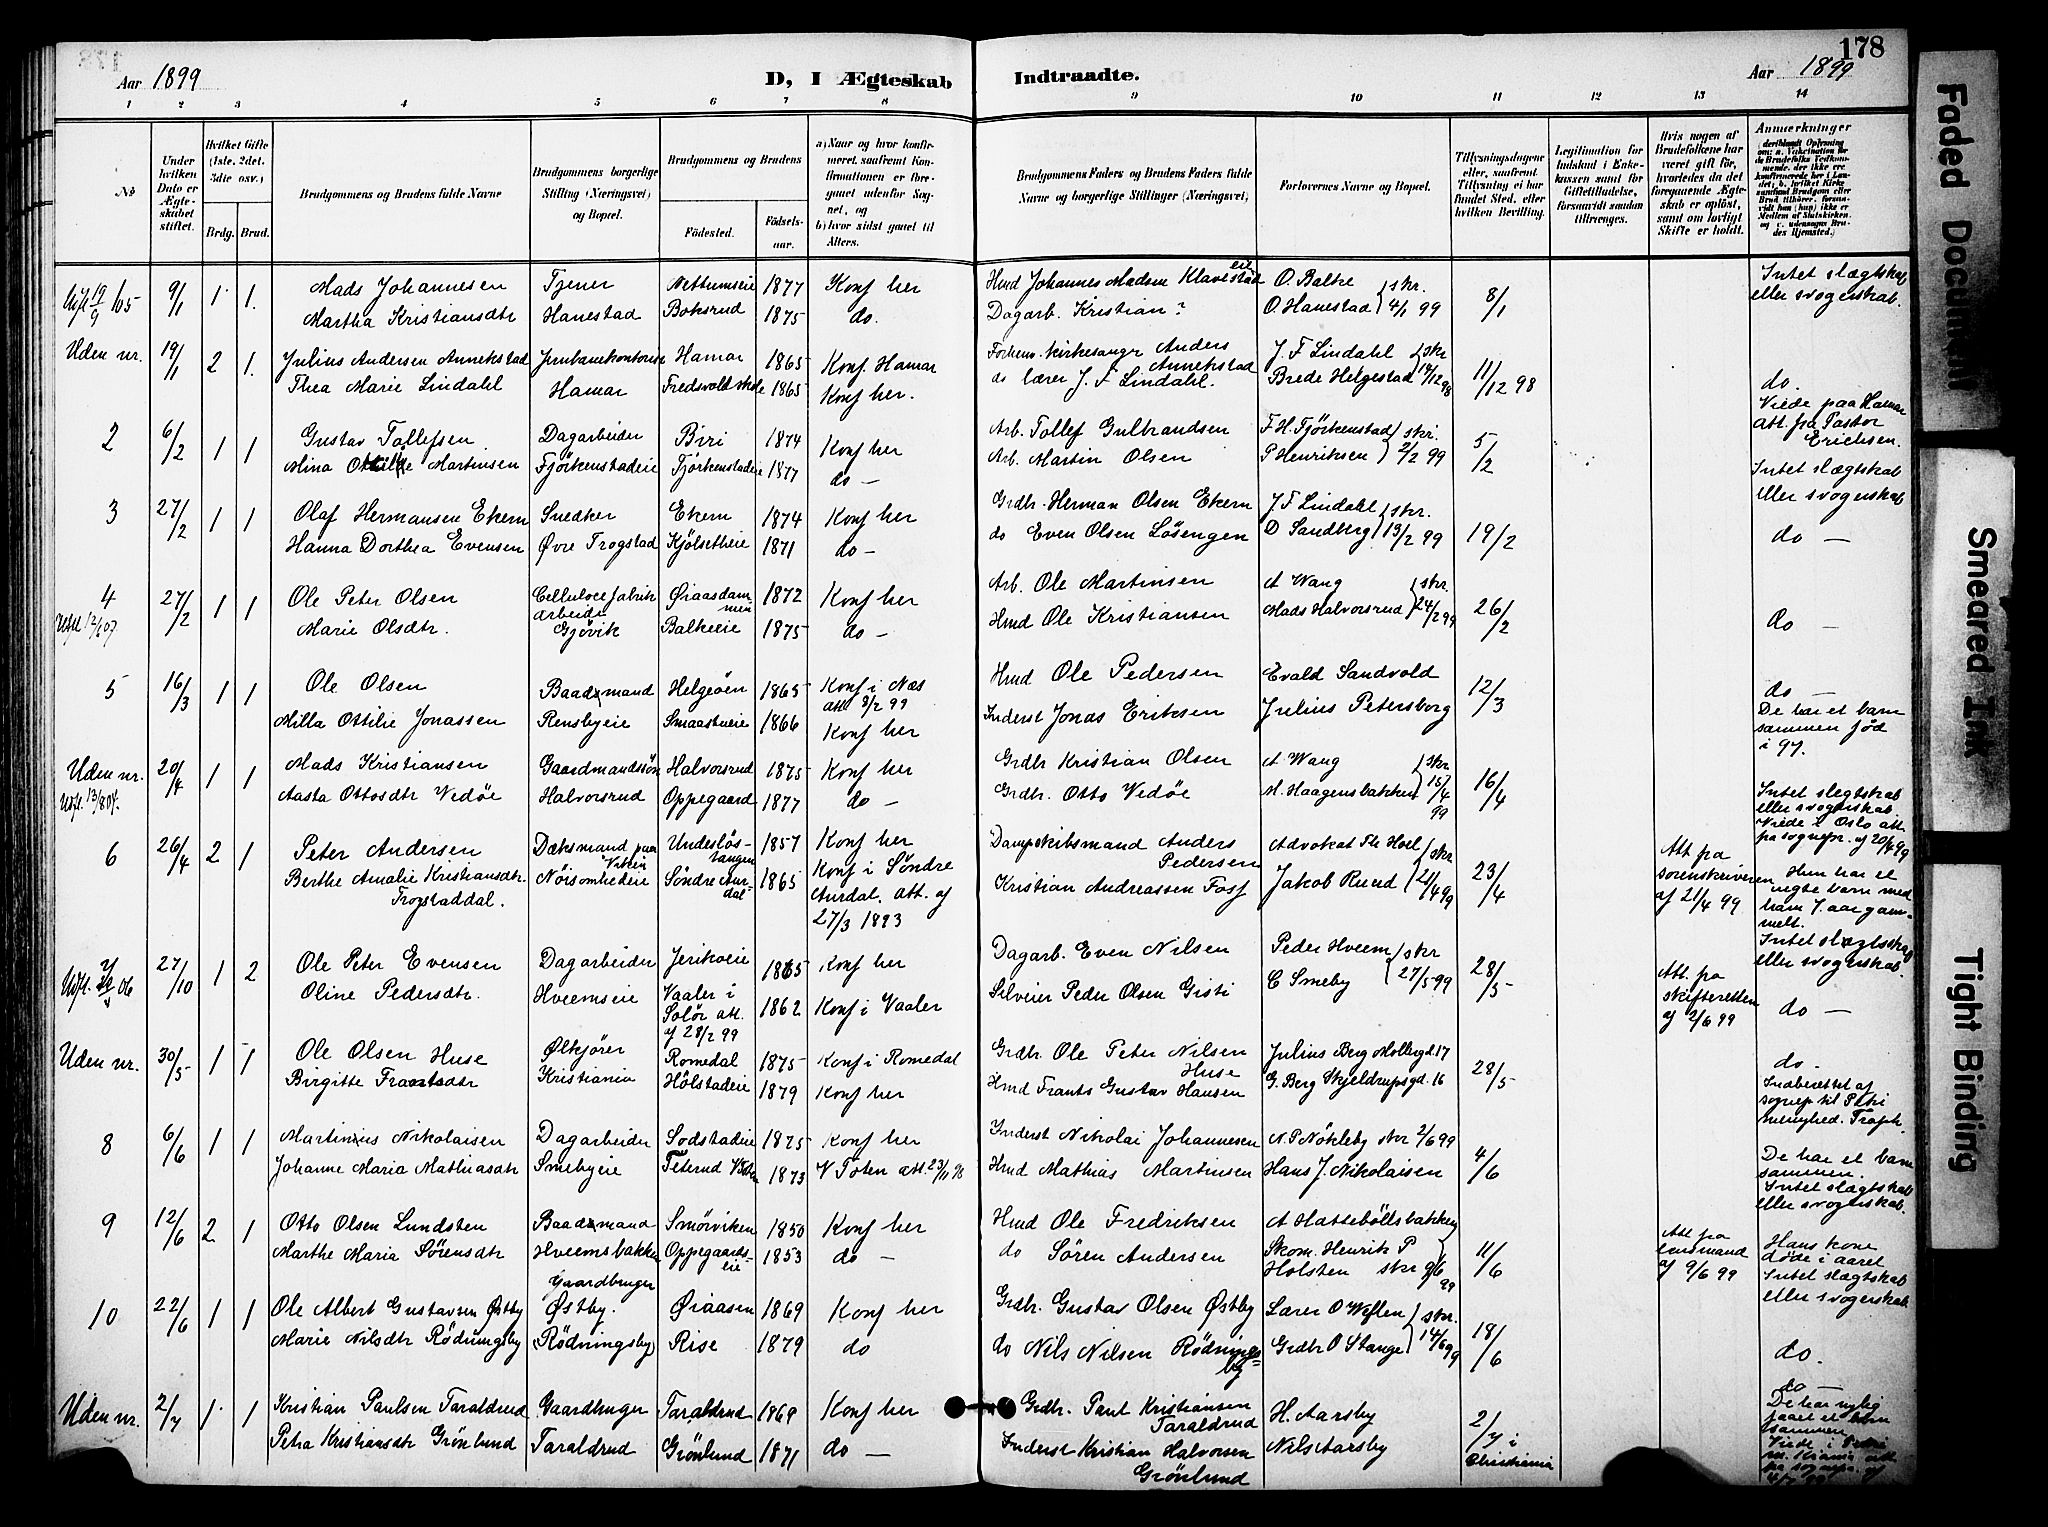 Aar 1899
D, I Ægteskab
Indtraadte.
Aar 1899
178
1 2 3 4 5 6 7 8 9 10 11 12 13 14
No
Under hvilken Dato er Ægteskabet stiftet.
Hvilket Gifte (1ste, 2det, 3dte osv.)
Brdg. Brud.
Brudgommens og Brudens fulde Navne
Brudgommens borgerlige Stilling (Næringsvei) og Bopæl.
Brudgommens og Brudens
Fødested.
Fødselsaar.
a) Naar og hvor konfirmeret, saafremt Konfirmationen er foregaaet udenfor Sognet, og
b) hvor sidst gaaet til Alters.
Brudgommens Faders og Brudens Faders fulde Navne og borgerlige Stillinger (Næringsvei)
Forlovernes Navne og Bopæl.
Tillysningsdagene eller, saafremt Tillysning ei har fundet Sted, efter hvilken Bevilling.
Legitimation for Indskud i Enkekassen samt for Giftetilladelse, forsaavidt saadan tiltrænges.
Hvis nogen af Brudefolkene har været gift før, hvorledes da det foregaaende Ægteskab er opløst, samt om lovligt Skifte er holdt.
Anmerkninger
(deriblandt Oplysning om: a. Vakcination for de Brudefolks Vedkommende, der ikke ere konfirmerede her i Landet; b. hvilket Kirkesamfund Brudgom eller Brud tilhører, forsaavidt han (hun) ikke er Medlem af Statskirken, og c. udensogns Brudes Hjemsted.)
9/1 1 1. Mads Johannesen Tjener Nettumseie 1877 Konf her Hmd Johannes Madsen Klavestadeie O. Balke 8/1 Intet slægtskab eller svogerskab.
Martha Kristiansdtr Hanestad Boksrud 1875 do. Dagarb. Kristian ? O. Hanestad skr. 4/1 99
Uden nr. 19/1 2 1. Julius Andersen Annekstad Jernbanekontorist Hamar 1865 Konf. Hamar Forhenv. kirkesanger Anders Annekstad J. F. Lindahl skr 11/12 98 do.
Thea Marie Lindahl Hamar Fredsvold skole 1865 Konf her. do lærer J. F. Lindahl. Brede Helgestad Viede paa Hamar att. fra Pastor Erichsen.
2 6/2 1 1 Gustav Tollefsen Dagarbeider Biri 1874 Konf her Arb. Tollef Gulbrandsen F. H. Tjörkenstad skr. 2/2 99 5/2 Intet slægtskab eller svogerskab
Mina Ottilde Martinsen Fjörkenstadeie Tjörkenstadeie 1877 do - Arb. Martin Olsen P Henriksen
3 27/2 1 1 Olaf Hermansen Ekern Snedker Ekern 1874 Konf her Grdbr. Herman Olsen Ekern J. F. Lindahl skr. 13/2 99 19/2 do -
Hanna Dorthea Evensen Øvre Trogstad Kjölsetheie 1871 do - do Even Olsen Lösengen D Sandberg
4 27/2 1 1 Ole Peter Olsen Cellulocefabrikarbeider Øiaasdammen 1872 Konf her Arb. Ole Martinsen A Wang skr 24/2 99 26/2 do -
Marie Olsdtr. Gjøvik Balkeeie 1875 do - Hmd Ole Kristiansen Mads Halvorsrud
5 16/3 1 1 Ole Olsen Baadsmand Helgeöen 1865 Konf i Næs att 8/2 99 Hmd Ole Pedersen Evald Sandvold 12/3 do -
Milla Ottilie Jonassen Rensbyeie Smaastueie 1866 Konf her Inderst Jonas Eriksen Julius Petersborg De har et barn sammen föd i 97.
Uden nr. 20/4 1 1 Mads Kristiansen Gaardmandssön Halvorsrud 1875 Konf her Grdbr Kristian Olsen A Wang skr 15/4 99 16/4 Intet slegtskab eller svogerskab.
Aasta Ottosdtr Vedöe Halvorsrud Oppegaard 1877 do - Grdbr. Otto Vedöe M. Haagensbakken Viede i Oslo att. fra sognepr. af 20/4 99
6 26/4 2 1 Peter Andersen Dæksmand paa Undeslöstangen 1857 Konf her Dampskibsmand Anders Pedersen Advokat Th Hoel skr 21/4 99 23/4 Att fra sorenskriveren af 21/4 99
Berthe Amalie Kristiansdtr. Trogstaddal. Nöisomhedeie Söndre Aurdal 1865 Konf i Söndre Aurdal. att. af 27/3 1883 Kristian Andreassen Foss Jakob Ruud Hun har et uegte barn med ham 7. aar gammelt.
27/10 1 2 Ole Peter Evensen Dagarbeider Jerikoeie 1865 Konf her Dagarb. Even Nilsen Peder Hveem skr 27/5 99 28/5 Att. fra skifteretten af 2/6 99 Intet slægtskab eller svogerskab.
Oline Pedersdtr. Hveemseie Vaaler i Solör att. af 28/2 99 1862 Konf i Vaaler Selveier Peder Olsen Gisti C Smeby do -
Uden nr. 30/5 1 1 Ole Olsen Huse Ølkjörer Romedal 1875 Konf i Romedal Grdbr Ole Peter Nilsen Huse Julius Berg Mollergd. 17 28/5 do.
Birgitte Frantsdtr Kristiania Hölstadeie 1879 Konf her Hmd Frants Gustav Hansen G. Berg Skjeldrupsgd. 16 Indberettet af sognepr til Petri menighed.
8 6/6 1 1 Martinius Nikolaisen Dagarbeider Sodstadeie 1875 Konf her Inderst Nikolai Johannesen N. P Nökleby skr 2/6 99 4/6 De har et barn sammen.
Johanne Maria Mathiasdtr Smebyeie Teterud 1873 V Toten att. Hmd Mathias Martinsen Hans J. Nikolaisen Intet slægtskab eller svogerskab.
9 12/6 2 1 Otto Olsen Lundsten Baadsmand Smörviken 1850 Konf her Hmd Ole Fredriksen A Hattebölsbakken 11/6 Att fra lensmand af 9/6 99 Hans kone döde i aaret
Marthe Maria Sörensdtr Hveemsbakken Oppegaardseie 1853 do - do Sören Andersen Skom. Henrik P Holsten skr 9/6 99 Intet slægtskab eller svogerskab.
10 22/6 1 1 Ole Albert Gustavsen Østby Gaardbruger Østby. Øiaasen 1869 Konf her Grdbr. Gustav Olsen Østby Lærer O Weflen skr. 14/6 99 18/6 do.
Marie Nilsdtr Rödningsby (Rödningsby) Rise 1879 do do Nils Nilsen Rödningsby Grdbr O Stange
Uden nr. 2/7 1 1 Kristian Paulsen Taraldrud Gaardbruger Taraldrud 1869 Konf her Grdbr. Paul Kristiansen Taraldrud H. Aarsby 2/7 i Christiania do -
Petra Kristiansdtr Grönlund Taraldrud Grönlund 1871 do - Inderst Kristian Halvorsen Grönlund Nils Aarsby De har nylig faaet et barn sammen
Faded Document
Smeared Ink
Tight Binding